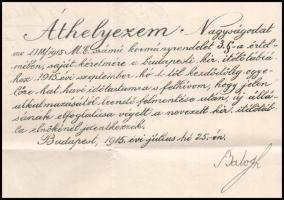 Áthelyezem Nagyságodat
az 1118/1915 M.E. számú kormányrendelet 3.§-a értel-
mében, saját kérelmére a budapesti kir. itélőtáblá-
hoz 1915. évi szeptember hó 1-től kezdődőleg egye-
lőre hat havi időtartamra s felhívom, hogy jelen
alkalmazásától leendő felmentése után, új állá-
sának elfoglalása végett a nevezett kir. itélőtáb-
la elnökénél jelentkezzék.
Budapest, 1915. évi július hó 25.-én.
Balogh